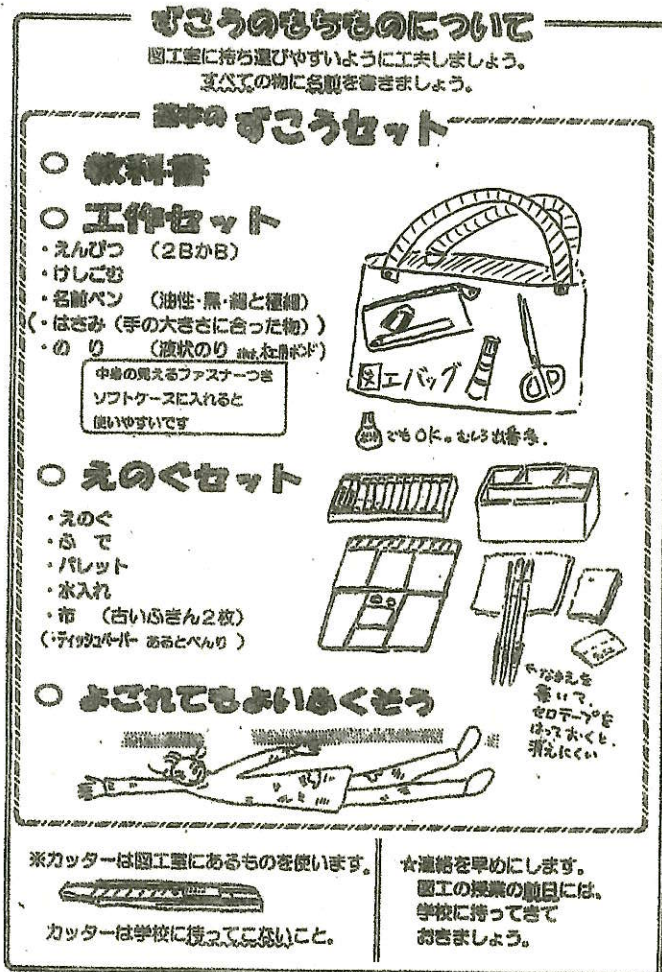 ずこうのもちものについて
図工室に持ち運びやすいように工夫しましょう。
すべての物に名前を書きましょう。
基本の ずこうセット
○ 教科書
○ 工作セット
・えんぴつ （2BかB）
・けしごむ
・名前ペン （油性・黒・細と極細）
（・はさみ（手の大きさに合った物））
・のり （液状のり
中身の見えるファスナーつき
ソフトケースに入れると
使いやすいです
図工バッグ
でもOK。
○ えのぐセット
・えのぐ
・ふで
・パレット
・水入れ
・布 （古いふきん2枚）
（・ティッシュペーパー あるとべんり）
なまえを
書いて、
セロテープを
はっておくと、
消えにくい
○ よごれてもよいふくそう
※カッターは図工室にあるものを使います。
カッターは学校に持ってこないこと。
☆連絡を早めにします。
図工の授業の前日には、
学校に持ってきて
おきましょう。